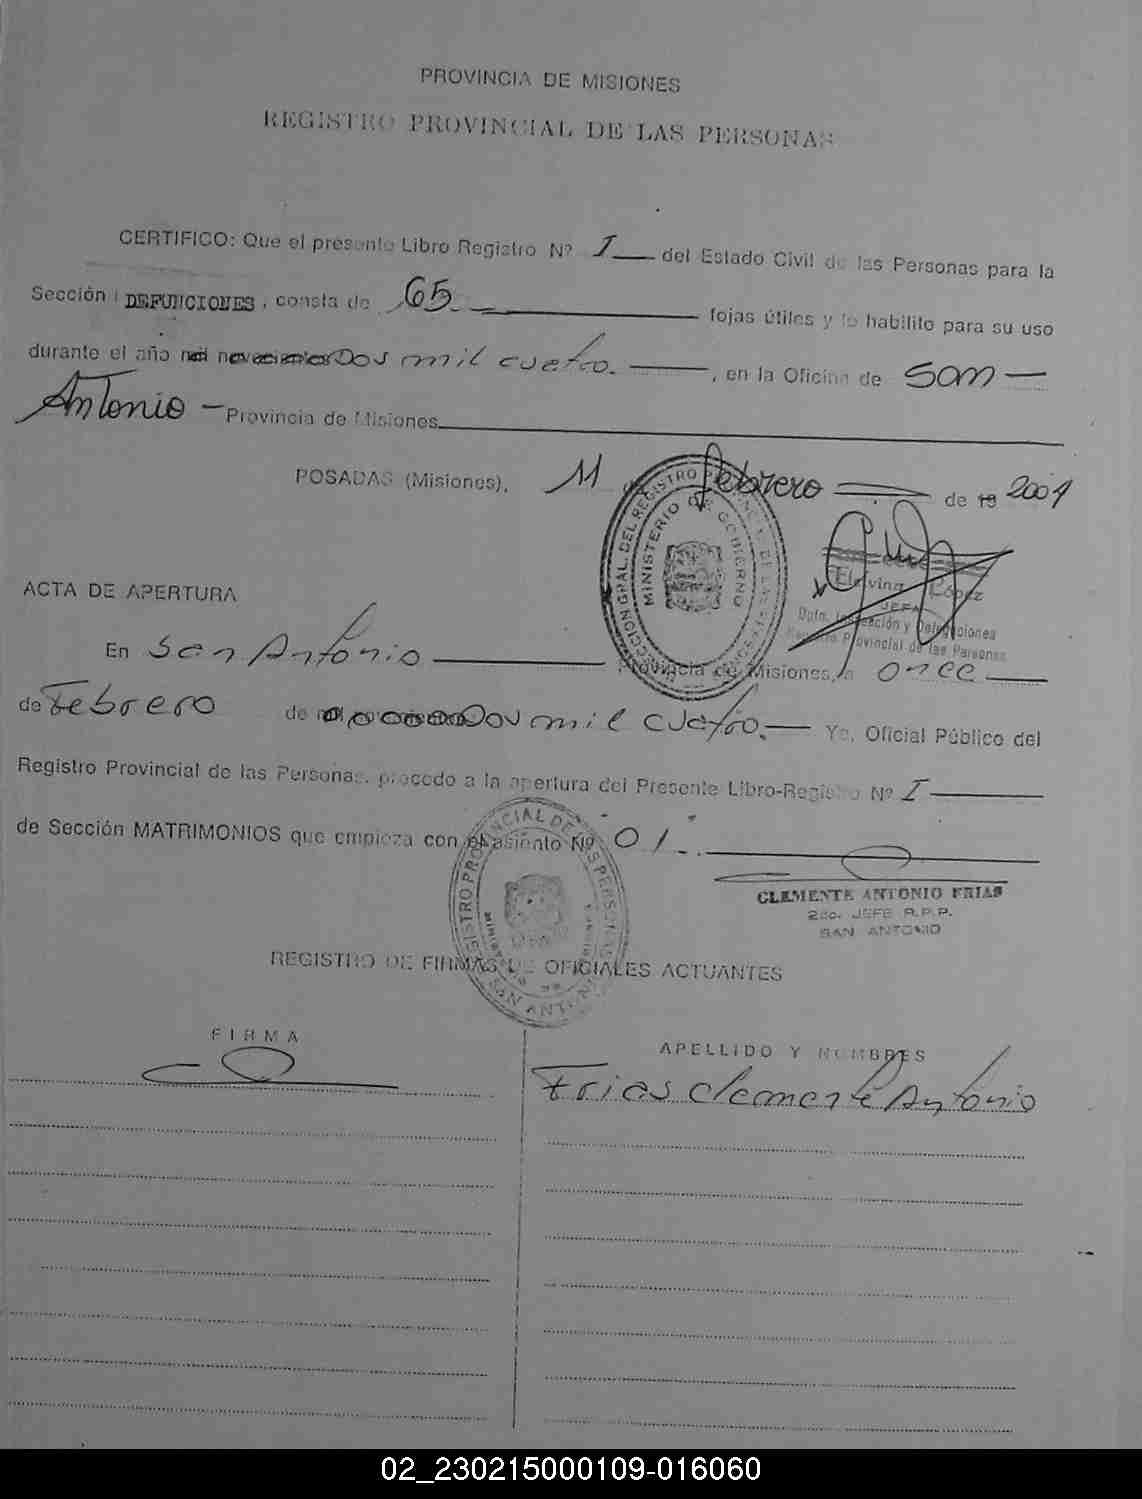 PROVINCIA DE MISIONES
REGISTRO PROVINCIAL DE LAS PERSONAS
CERTIFICO: Que el presente Libro Registro Nº I del Estado Civil de las Personas para la
Sección DEFUNCIONES, consta de 65 fojas útiles y lo habilito para su uso
durante el año mil novecientos Dos mil cuatro. , en la Oficina de San
Antonio - Provincia de Misiones
POSADAS (Misiones), 11 febrero de 19 2004
DIRECCION GRAL. DEL REGISTRO PROVINCIAL DE LAS PERSONAS
MINISTERIO DE GOBIERNO
López
JEFA
Dpto. Inspección y Delegaciones
Registro Provincial de las Personas
ACTA DE APERTURA
En San Antonio Provincia de Misiones, a once
de Febrero de Dos mil cuatro. Yo, Oficial Público del
Registro Provincial de las Personas, procedo a la apertura del Presente Libro-Registro Nº I
de Sección MATRIMONIOS que empieza con el asiento Nº 01.
REGISTRO PROVINCIAL DE LAS PERSONAS
SAN ANTONIO
CLEMENTE ANTONIO FRIAS
2do. JEFE R.P.P.
SAN ANTONIO
REGISTRO DE FIRMAS DE OFICIALES ACTUANTES
FIRMA
APELLIDO Y NOMBRES
Frias Clemente Antonio
02_230215000109-016060